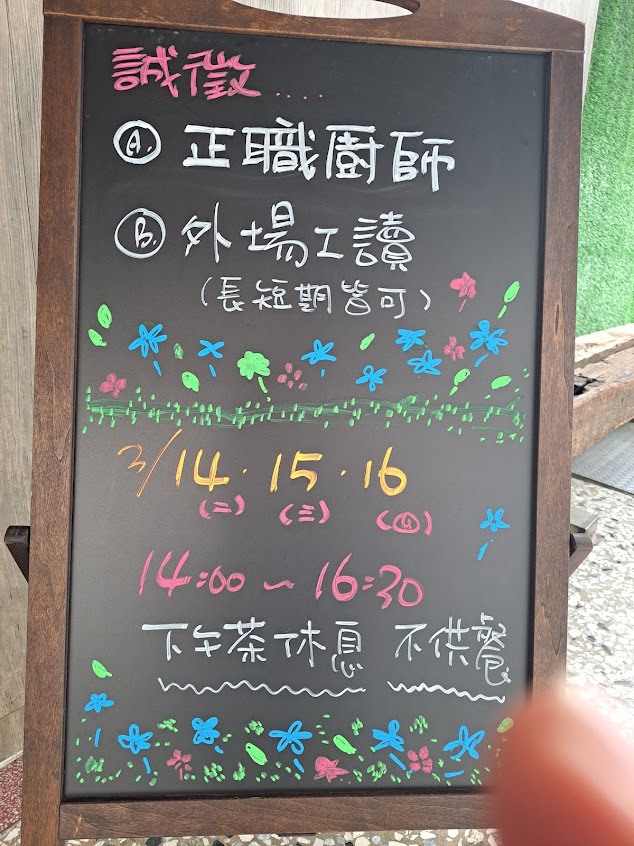 誠徵....
Ⓐ 正職廚師
Ⓑ 外場工讀
(長短期皆可)
3/14.15.16
(二) (三) (四)
14:00~16:30
下午茶休息 不供餐